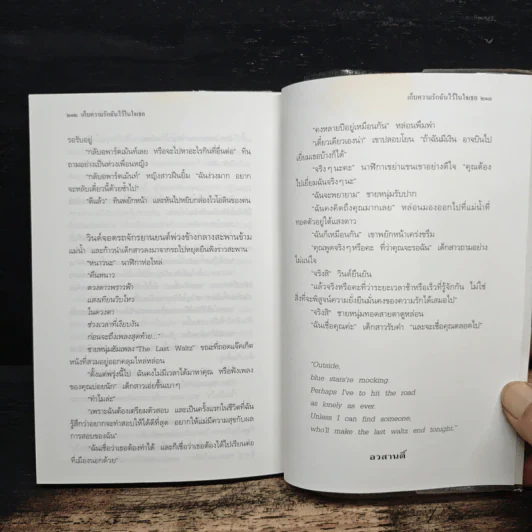 ๒๓๒ เก็บความรักฉันไว้ในใจเธอ
รอรับอยู่
"กลับอพาร์ตเม้นท์เลย หรือจะไปหาอะไรกินที่อื่นต่อ" ทีน
ถามอย่างเป็นห่วงเพื่อนหญิง
"กลับอพาร์ตเม้นท์" หญิงสาวฝืนยิ้ม "ฉันง่วงมาก อยาก
จะหลับเดี๋ยวนี้ด้วยซ้ำไป"
"ดีแล้ว" ทีนพยักหน้า และหันไปหยิบกล่องไวโอลินของตน
วินด์จอดรถจักรยานยนต์พ่วงข้างกลางสะพานข้าม
แม่น้ำ และก้าวนำเด็กสาวลงมาจากรถไปหยุดยืนพิงราวสะพาน
"หนาวนะ" นาฬิกาห่อไหล่
"คืนหนาว
ดวงดาวพร่างฟ้า
แสงเทียนวับไหว
ในดวงตา
ช่วงเวลาที่เงียบงัน
ก่อนจะถึงเพลงสุดท้าย..."
ชายหนุ่มฮัมเพลง "The Last Waltz" ขณะที่ถอดแจ็คเก็ต
หนังที่สวมอยู่ออกคลุมไหล่หล่อน
"ตั้งแต่พรุ่งนี้ไป ฉันคงไม่มีเวลาได้มาหาคุณ หรือฟังเพลง
ของคุณบ่อยนัก" เด็กสาวเอ่ยขึ้นเบาๆ
"ทำไมล่ะ"
"เพราะฉันต้องเตรียมตัวสอบ และเป็นครั้งแรกในชีวิตที่ฉัน
รู้สึกว่าอยากจะทำสอบให้ได้ดีที่สุด อยากให้แม่มีความสุขกับผล
การสอบของฉัน"
"ฉันเชื่อว่าเธอต้องทำได้ และก็เชื่อว่าเธอต้องได้ไปเรียนต่อ
ที่เมืองนอกด้วย"
เก็บความรักฉันไว้ในใจเธอ ๒๓๓
"คงหลายปีอยู่เหมือนกัน" หล่อนพึมพำ
"เดี๋ยวเดียวเองน่า" เขาปลอบโยน "ถ้าฉันมีเงิน อาจบินไป
เยี่ยมเธอบ้างก็ได้"
"จริงๆ นะคะ" นาฬิกาเขย่าแขนเขาอย่างดีใจ "คุณต้อง
ไปเยี่ยมฉันจริงๆ นะ"
"ฉันจะพยายาม" ชายหนุ่มรับปาก
"ฉันคงคิดถึงคุณมากเลย" หล่อนมองออกไปที่แม่น้ำที่
ทอดตัวอยู่ใต้แสงดาว
"ฉันก็เหมือนกัน" เขาพยักหน้าเคร่งขรึม
"คุณพูดจริงๆ หรือคะ ที่ว่าคุณจะรอฉัน" เด็กสาวถามอย่าง
ไม่แน่ใจ
"จริงสิ" วินด์ยืนยัน
"แล้วจริงหรือคะที่ว่าระยะเวลาช้าหรือเร็วที่รู้จักกัน ไม่ใช่
สิ่งที่จะพิสูจน์ความยั่งยืนมั่นคงของความรักได้เสมอไป"
"จริงสิ" ชายหนุ่มทอดสายตาดูหล่อน
"ฉันเชื่อคุณค่ะ" เด็กสาวรับคำ "และจะเชื่อคุณตลอดไป"
"Outside,
blue stars're mocking.
Perhaps I've to hit the road
as lonely as ever.
Unless I can find someone,
who'll make the last waltz end tonight."
ลวสานติ์